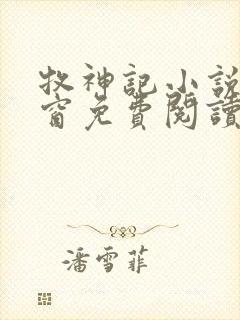 牧神記小說
窗免費閱讀
潘雪菲